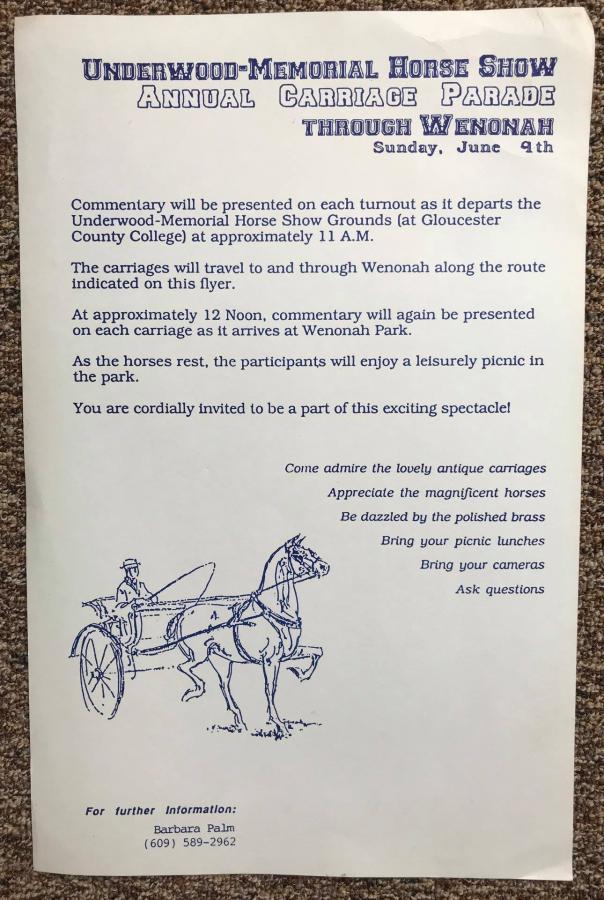 Underwood-Memorial Horse Show
Annual Carriage Parade
through Wenonah
Sunday, June 9th
Commentary will be presented on each turnout as it departs the
Underwood-Memorial Horse Show Grounds (at Gloucester
County College) at approximately 11 A.M.
The carriages will travel to and through Wenonah along the route
indicated on this flyer.
At approximately 12 Noon, commentary will again be presented
on each carriage as it arrives at Wenonah Park.
As the horses rest, the participants will enjoy a leisurely picnic in
the park.
You are cordially invited to be a part of this exciting spectacle!
Come admire the lovely antique carriages
Appreciate the magnificent horses
Be dazzled by the polished brass
Bring your picnic lunches
Bring your cameras
Ask questions
For further Information:
Barbara Palm
(609) 589-2962